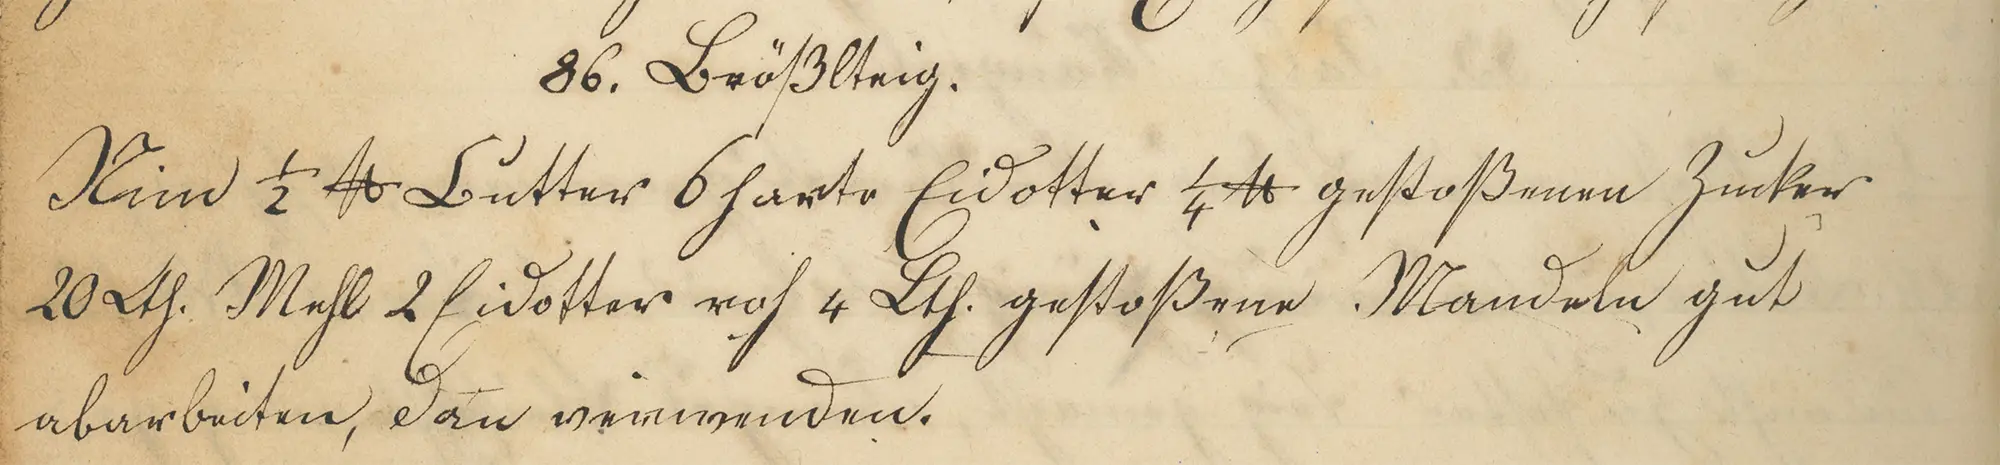 86. Brößlteig.
Nim 1/2 ℔ Butter 6 harte Eidotter 1/4 ℔ gestoßenen Zucker
20 Lth. Mehl 2 Eidotter roh 4 Lth. gestoßene Mandeln gut
abarbeiten, dan verwenden.